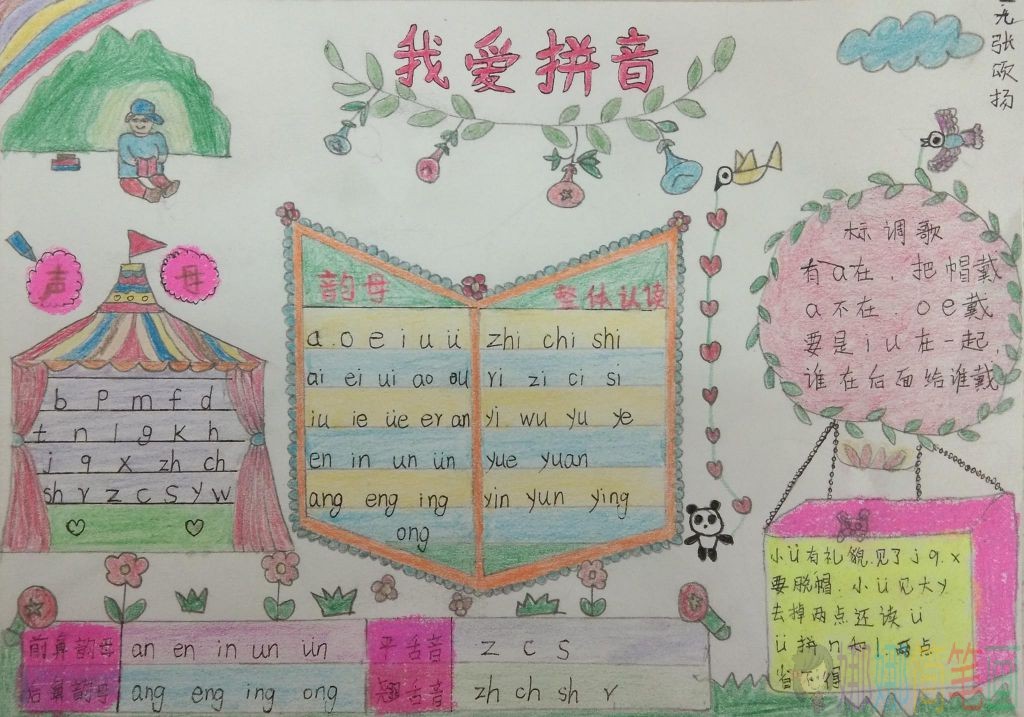 我爱拼音
一九张颂扬
声母
b p m f d
t n l g k h
j q x zh ch
sh r z c s y w
韵母
a o e i u ü
ai ei ui ao ou
iu ie üe er an
en in un ün
ang eng ing
ong
整体认读
zhi chi shi
ri zi ci si
yi wu yu ye
yue yuan
yin yun ying
标调歌
有a在．把帽戴
a不在．o e戴
要是i u在一起，
谁在后面给谁戴
小ü有礼貌.见了j q.x
要脱帽．小ü见大y
去掉两点还读ü
ü拼n和l两点
省不得
前鼻韵母 an en in un ün
后鼻韵母 ang eng ing ong
平舌音 z c s
翘舌音 zh ch sh r